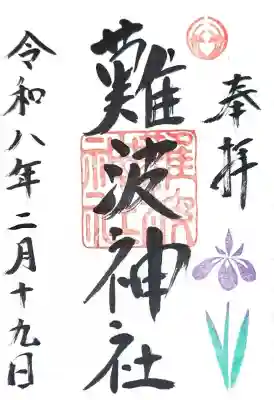 奉拝
難波神社
難波神社
令和八年二月十九日